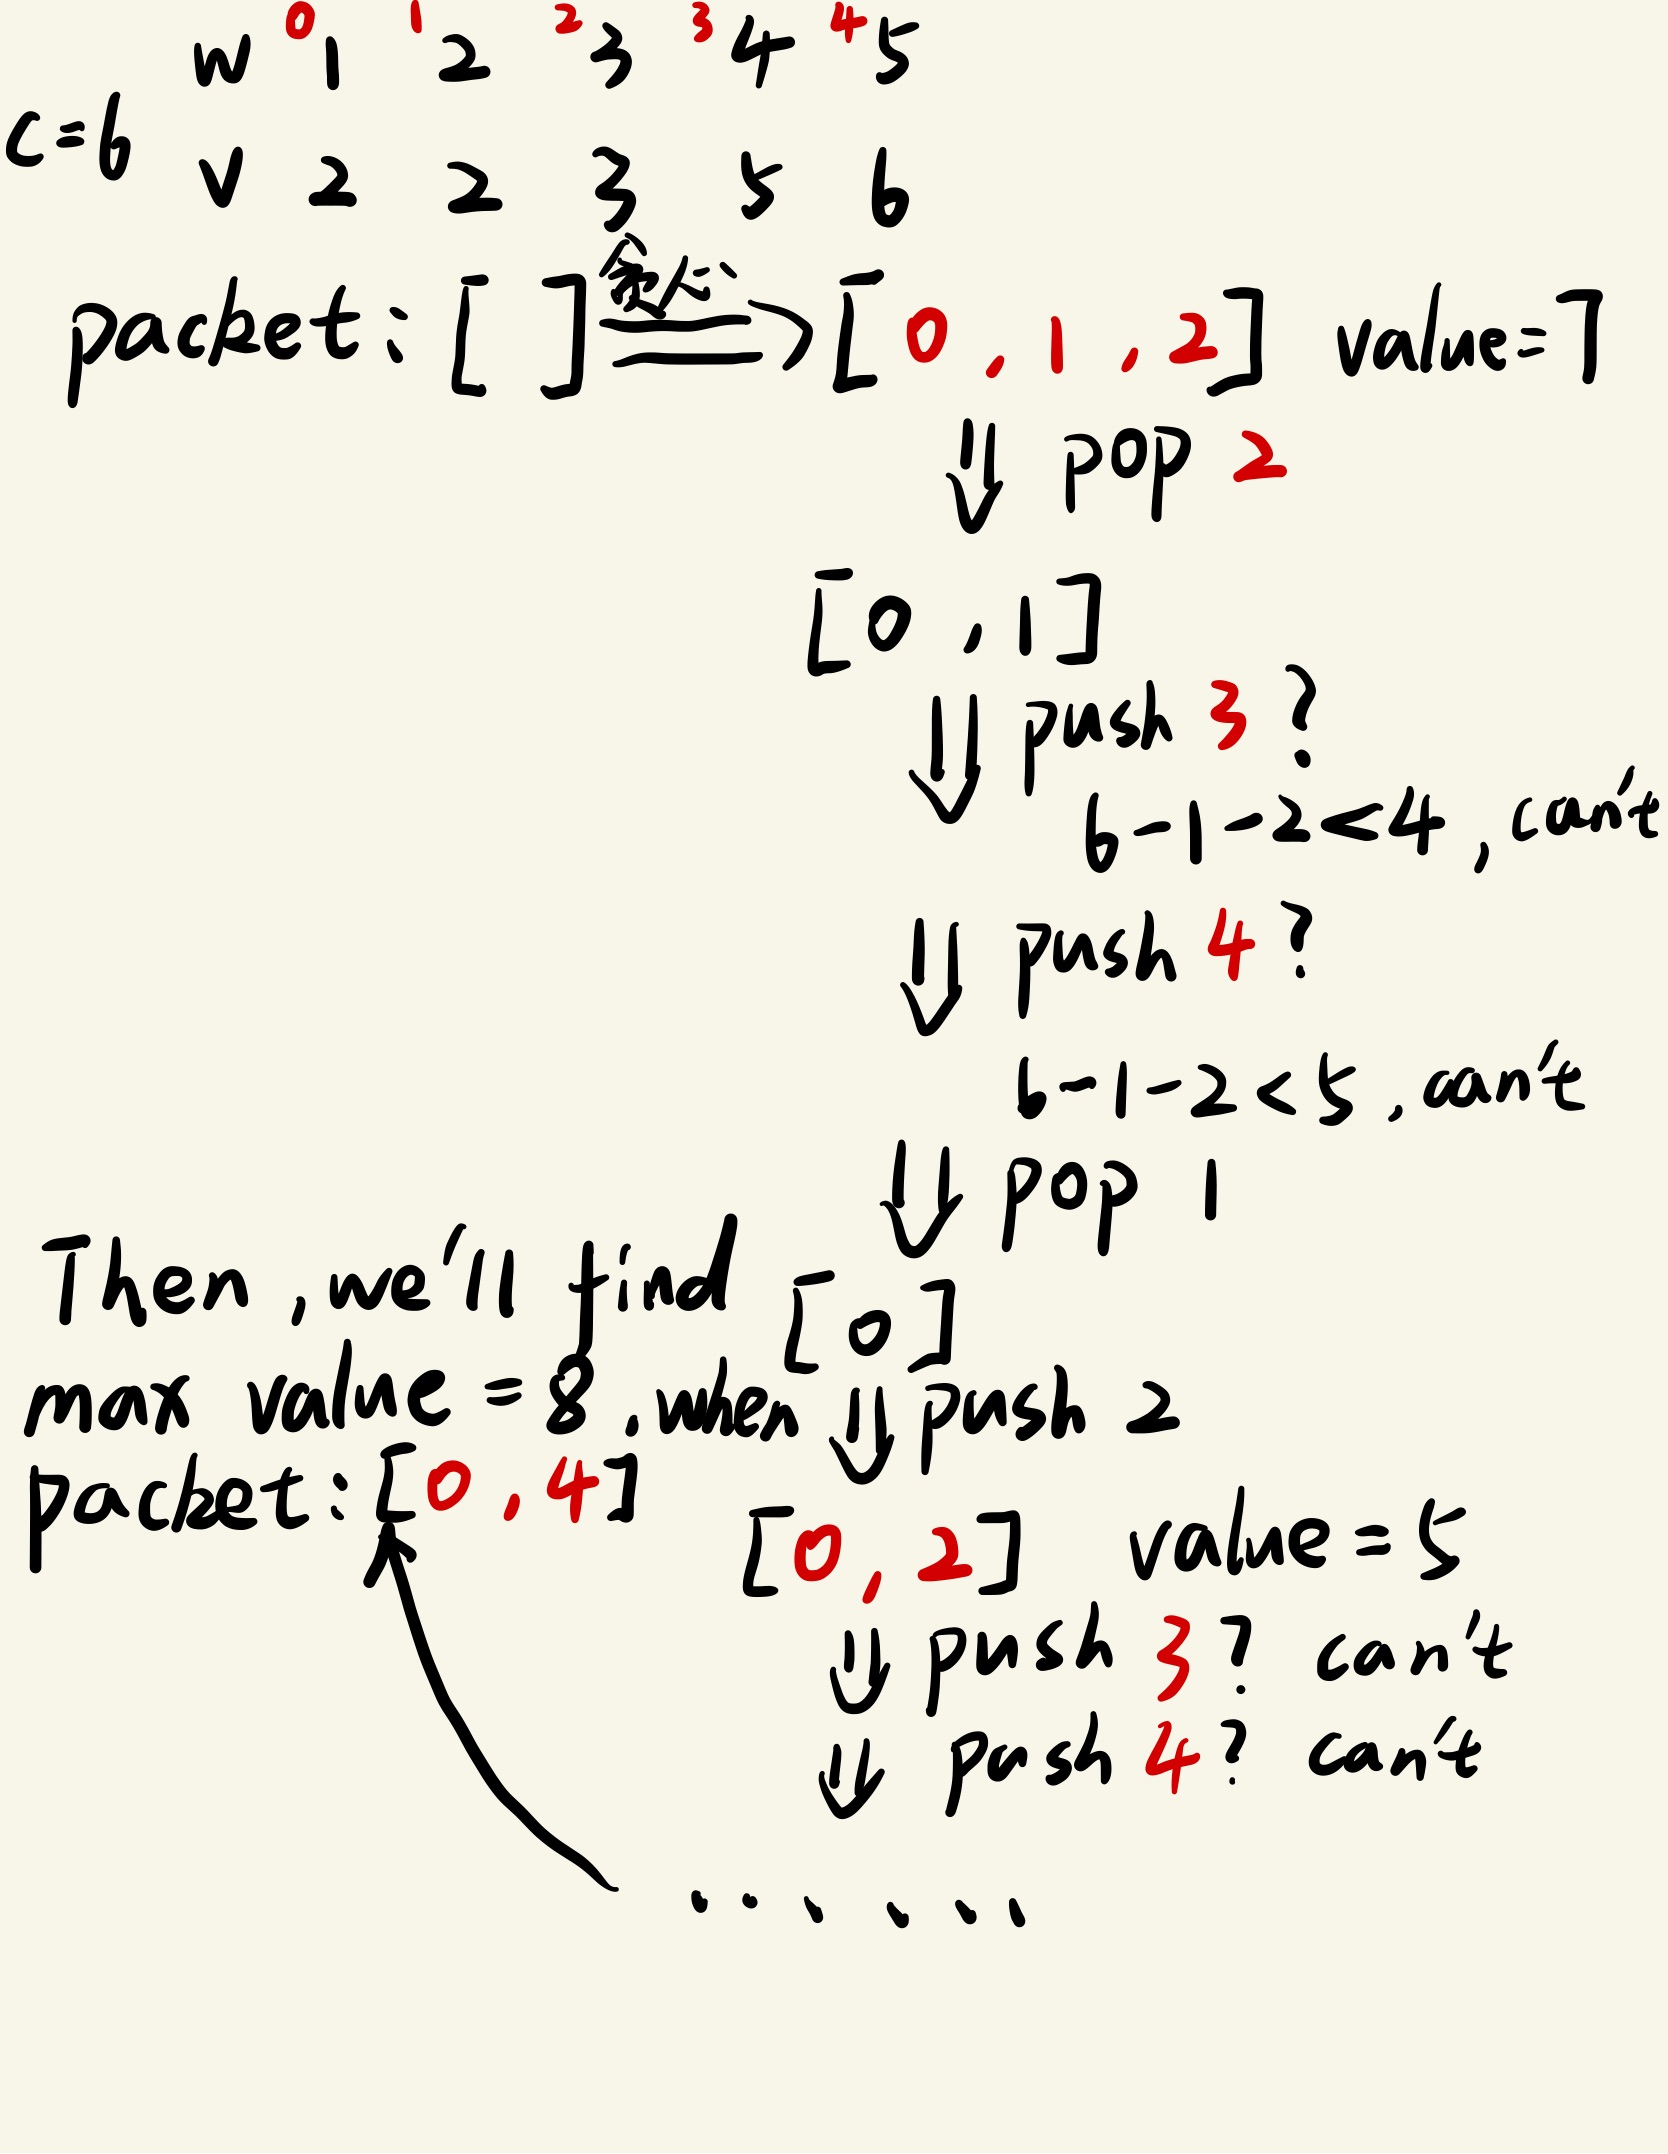 0 1 2 3 4
w 1 2 3 4 5
c=6
v 2 2 3 5 6
贪心
packet: [ ] ⇒ [0, 1, 2] value=7
⇓ pop 2
[0, 1]
⇓ push 3?
6-1-2<4, can't
⇓ push 4?
6-1-2<5, can't
⇓ pop 1
[0]
⇓ push 2
[0, 2] value=5
⇓ push 3? can't
⇓ push 4? can't
......
Then, we'll find
max value=8, when
packet: [0, 4]